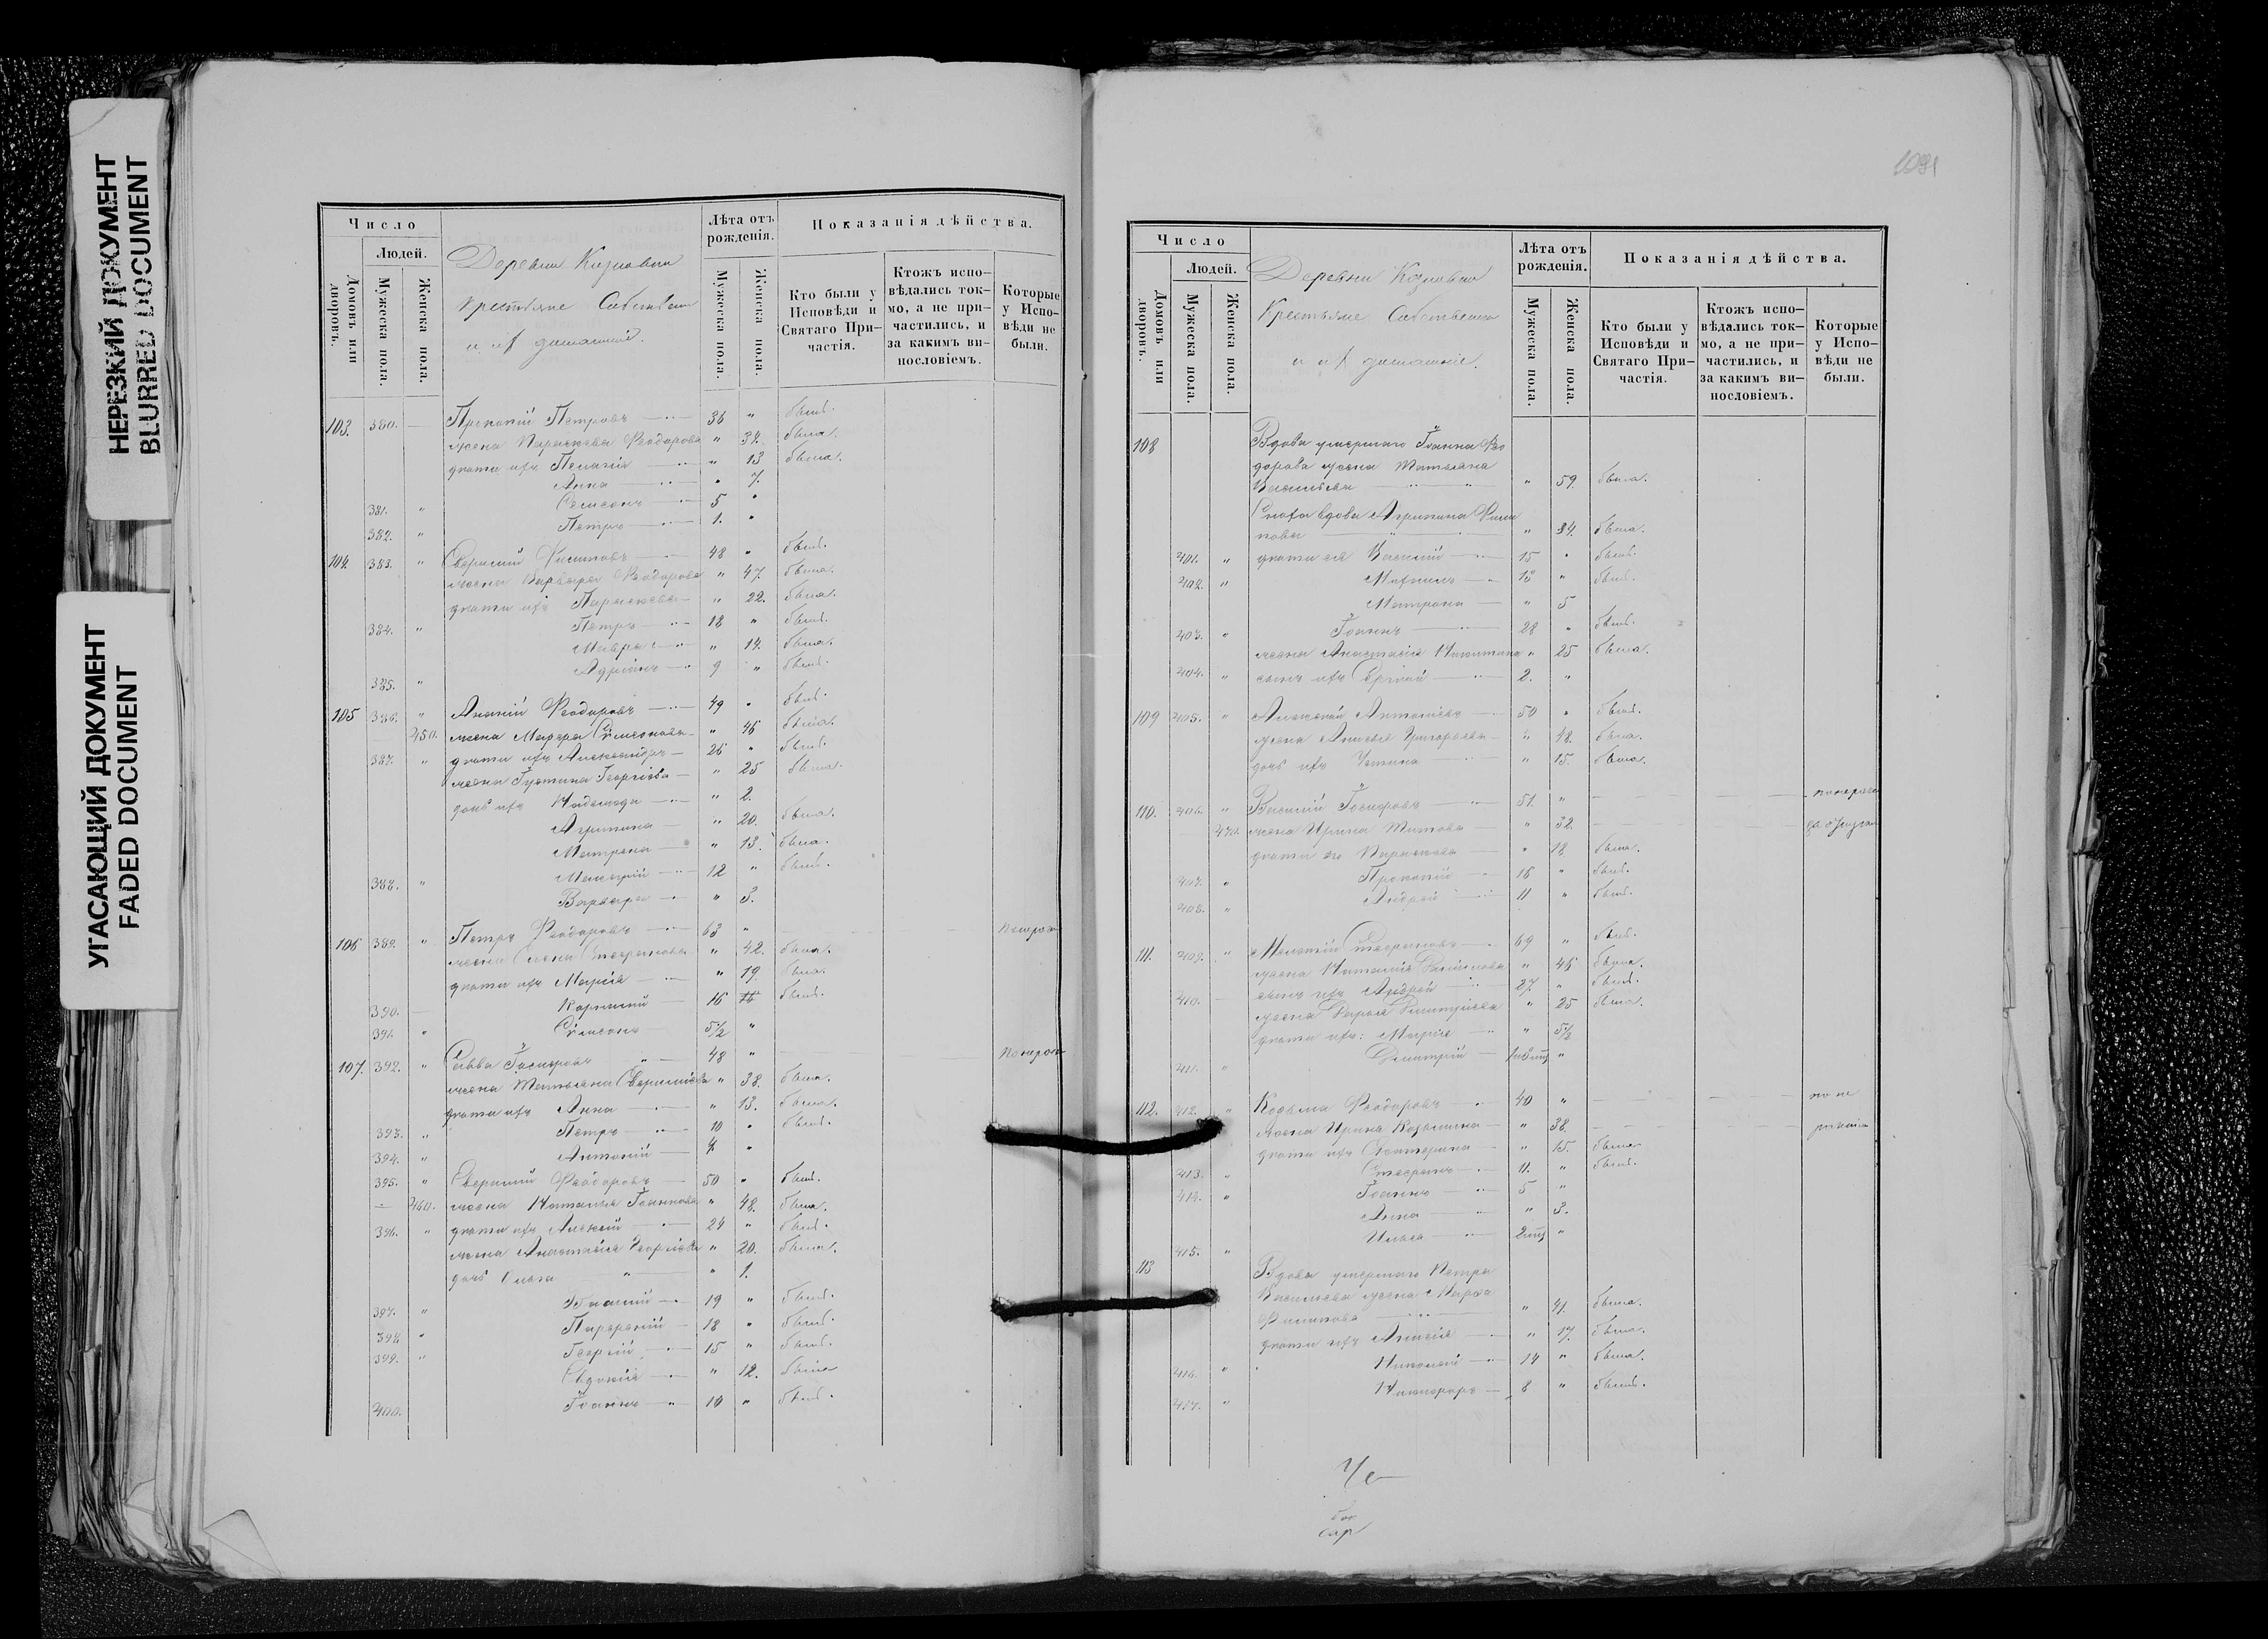 НЕРЕЗКИЙ ДОКУМЕНТ
BLURRED DOCUMENT
УГАСАЮЩИЙ ДОКУМЕНТ
FADED DOCUMENT
Число
Людей.
Домовъ или дворовъ.
Мужеска пола.
Женска пола.
Деревни
крестьяне
и их домашніе.
Лѣта отъ рожденія.
Мужеска пола.
Женска пола.
Показанія дѣйства.
Кто были у Исповѣди и Святаго При-частія.
Ктожъ испо-вѣдались ток-мо, а не при-частились, и за какимъ ви-нословіемъ.
Которые у Испо-вѣди не были.
103. 380. Прокопій Петровъ 36 " былъ.
жена Параскева Ѳеодорова " 34. была.
дѣти ихъ Пелагія " 13 была.
Анна " 7.
381. " Семеонъ 5 "
382. " Петръ 1. "
104. 383. " Филиповъ 48 " былъ.
жена Варвара Ѳеодорова " 47. была.
дѣти ихъ Параскева " 22. была.
384. " Петръ 18 " былъ.
Мавра " 14. была.
385. " Адріанъ 9 " былъ.
105 386. " Ананій Ѳеодоровъ 49 " былъ.
450. жена Марѳа Симеонова " 46 была.
387. " дѣти ихъ Александръ 26 " былъ.
жена Іустина Георгіева " 25 была.
дочь ихъ Надежда " 2.
Агрипина " 20. была.
Матрона " 13. была.
388. " 12 " былъ.
Варвара " 3.
106 389. " Петръ Ѳеодоровъ 63 "
жена Елена Стефанова " 42. была.
дѣти ихъ Марія " 19 была.
390. Корнилій 16 былъ.
391. " Симеонъ 5½ "
107. 392. " Савва Іосифовъ 48 "
жена Татьяна " 38. была.
дѣти ихъ Анна " 13. была.
393. " Петръ 10 " былъ.
394. " Антоній "
395. " Ѳеодоровъ 50 " былъ.
460. жена Наталья Іоаннова " 48. была.
396. " дѣти ихъ Алексій 24 " былъ.
жена Анастасія Георгіева " 20. была.
дочь " 1.
397. " 19 " былъ.
398. " Парфеній 18 " былъ.
399. " Георгій 15 " былъ.
Евдокія " 12. была
400. Іоаннъ 10 " былъ.
1091
Число
Людей.
Домовъ или дворовъ.
Мужеска пола.
Женска пола.
Деревни
Крестьяне
и их домашніе.
Лѣта отъ рожденія.
Мужеска пола.
Женска пола.
Показанія дѣйства.
Кто были у Исповѣди и Святаго При-частія.
Ктожъ испо-вѣдались ток-мо, а не при-частились, и за какимъ ви-нословіемъ.
Которые у Испо-вѣди не были.
108 Вдова умершаго Іоанна Ѳео
дорова жена Татьяна
Васильева " 59. была.
Сноха вдова Агрипина Фили
пова " 34. была.
401. " дѣти ея Василій 15 " былъ.
402. " Михаилъ 13 " былъ.
Матрона " 5
403. " Іоаннъ 28 " былъ.
жена Анастасія Никитина " 25 была.
404. " сынъ ихъ Сергій 2. "
109 405. " Алексій Антоніевъ 50 " былъ.
жена Григорьева " 48. была.
дочь ихъ Устина " 15. была.
110. 406. " Василій Іосифовъ 51. "
470. жена Ирина Титова " 32.
дѣти его Параскева " 18 была.
407. " Прокопій 16 " былъ.
408. " Андрей 11 " былъ.
111. 409. " Стефановъ 69 " былъ.
жена Наталія " 46 была.
410. сынъ ихъ Андрей 27. " былъ.
жена Дарья Димитріева " 25 была.
дѣти ихъ: Марія " 5½
411. " Димитрій "
112. 412. " Козьма Ѳеодоровъ 40 "
жена Ирина Козьмина " 38.
дѣти ихъ Екатерина " 15. была
413. " Стефанъ 11. " былъ.
414. " Іоаннъ 5 "
Анна " 3.
415. " Илья "
113 Вдова умершаго Петра
Васильева жена Марѳа
Филипова " 41. была.
дѣти ихъ " 17. была.
416. " Николай 14 " была.
417. " Никифоръ 8 " былъ.